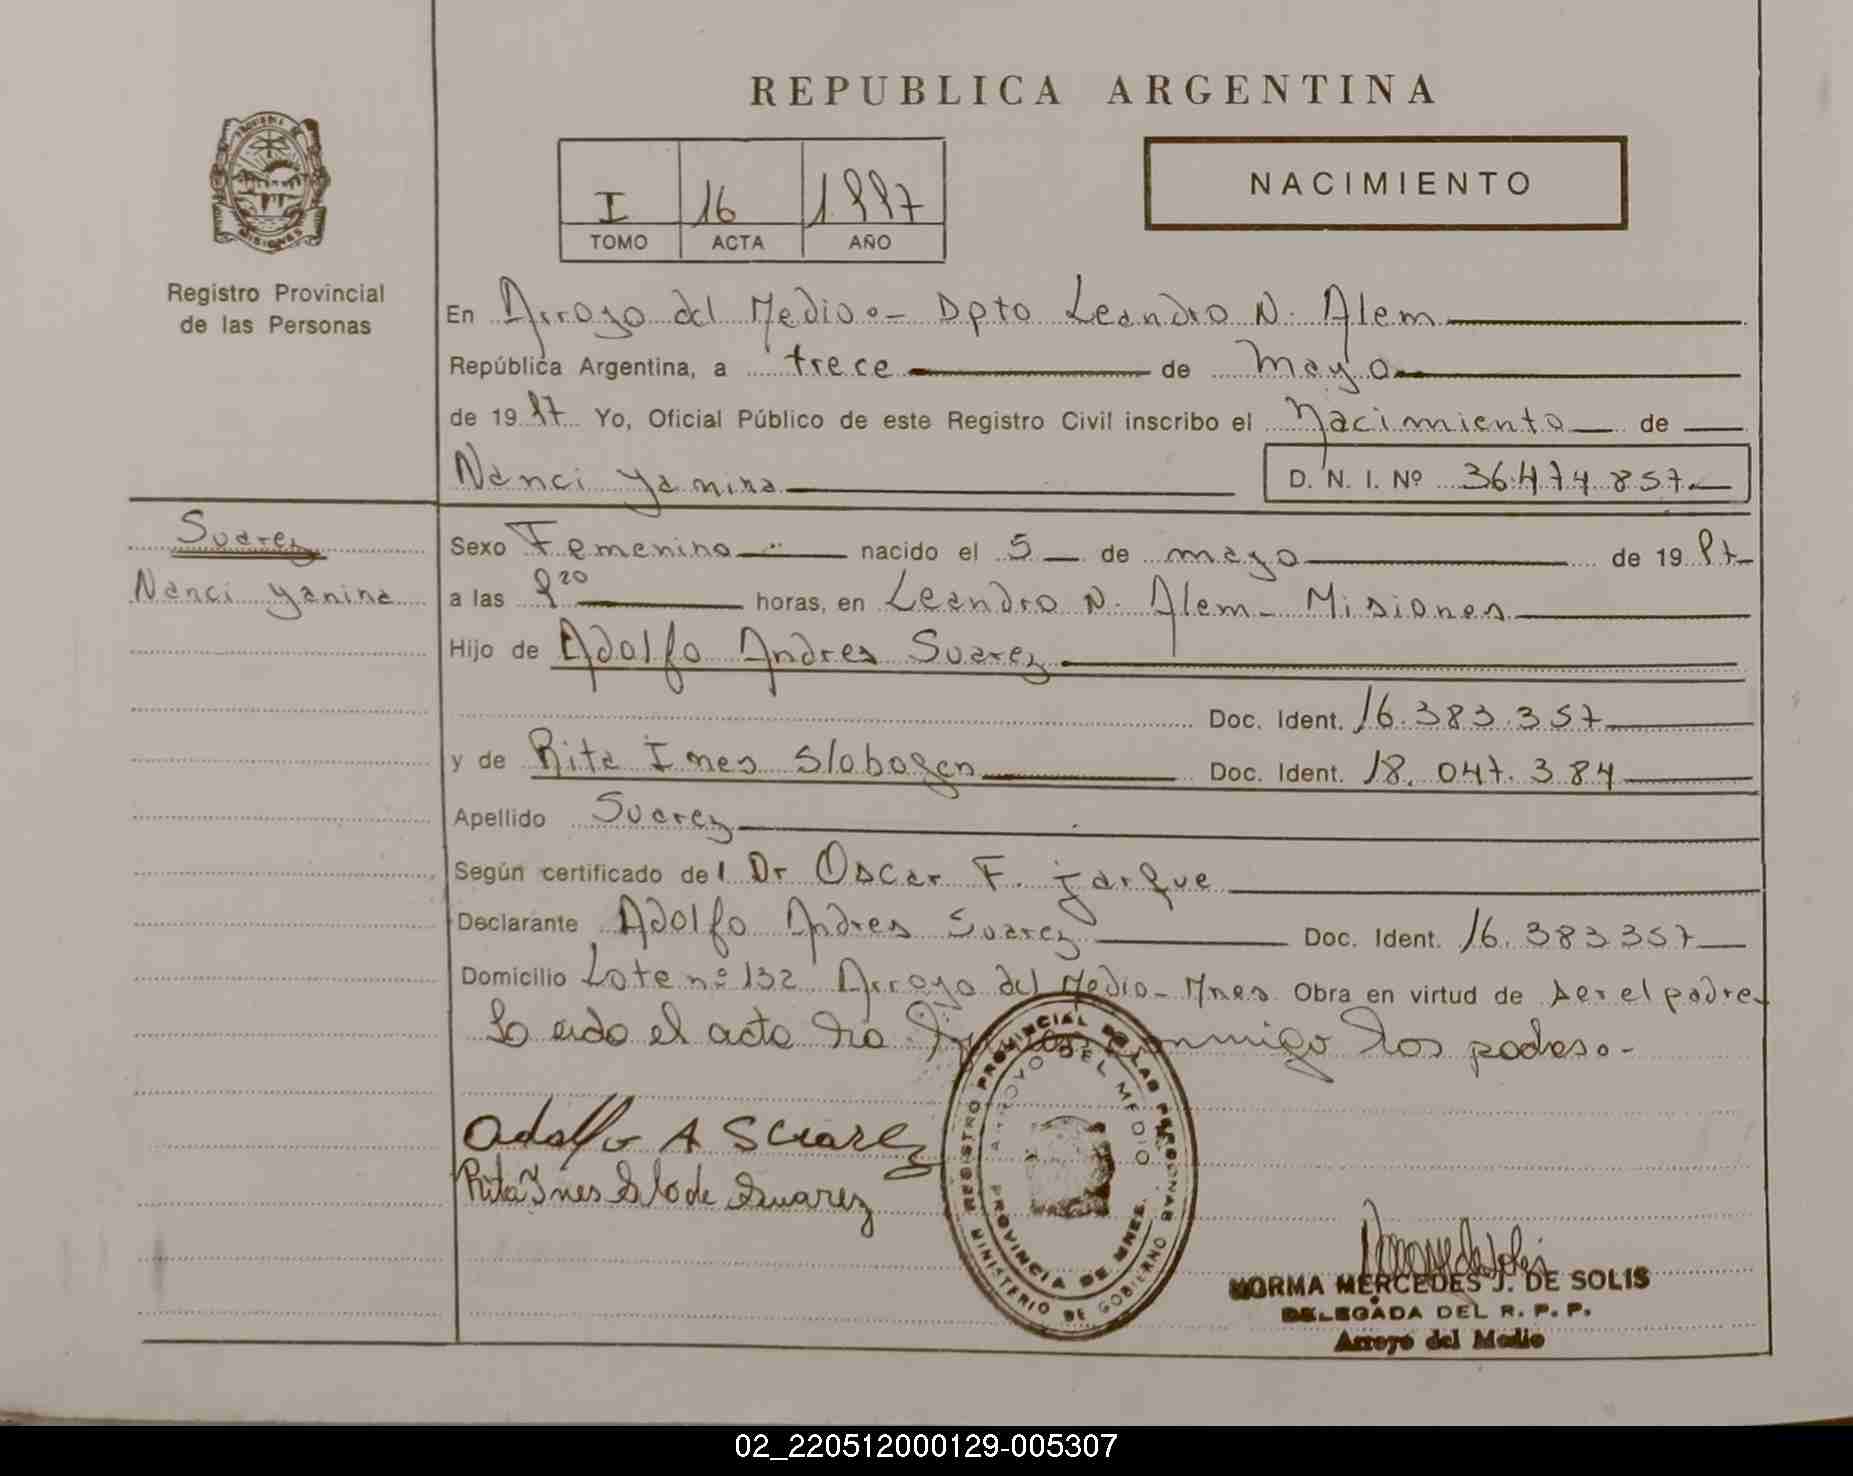 REPUBLICA ARGENTINA
PROVINCIA DE
MISIONES
Registro Provincial
de las Personas
I 16 1.997
TOMO ACTA AÑO
NACIMIENTO
En Arroyo del Medio.- Dpto Leandro N. Alem
República Argentina, a trece de Mayo
de 19 97 Yo, Oficial Público de este Registro Civil inscribo el Nacimiento de
Nanci Yanina D. N. I. Nº 36.474.857.-
Suarez
Nanci Yanina
Sexo Femenino nacido el 5 de mayo de 19 97-
a las 9 20 horas, en Leandro N. Alem - Misiones
Hijo de Adolfo Andres Suarez
Doc. Ident. 16.383.357
y de Rita Ines Slobogen Doc. Ident. 18.047.384
Apellido Suarez
Según certificado de l Dr Oscar F. Jarque
Declarante Adolfo Andres Suarez Doc. Ident. 16.383.357
Domicilio Lote nº 132 Arroyo del Medio - Mnes. Obra en virtud de ser el padre-
conmigo los padres.-
Adolfo A Suarez
Rita Ines Slo de Suarez
REGISTRO PROVINCIAL DE LAS PERSONAS
MINISTERIO DE GOBIERNO
ARROYO DEL MEDIO
PROVINCIA DE MNES.
NORMA MERCEDES J. DE SOLIS
DELEGADA DEL R. P. P.
Arroyo del Medio
02_220512000129-005307